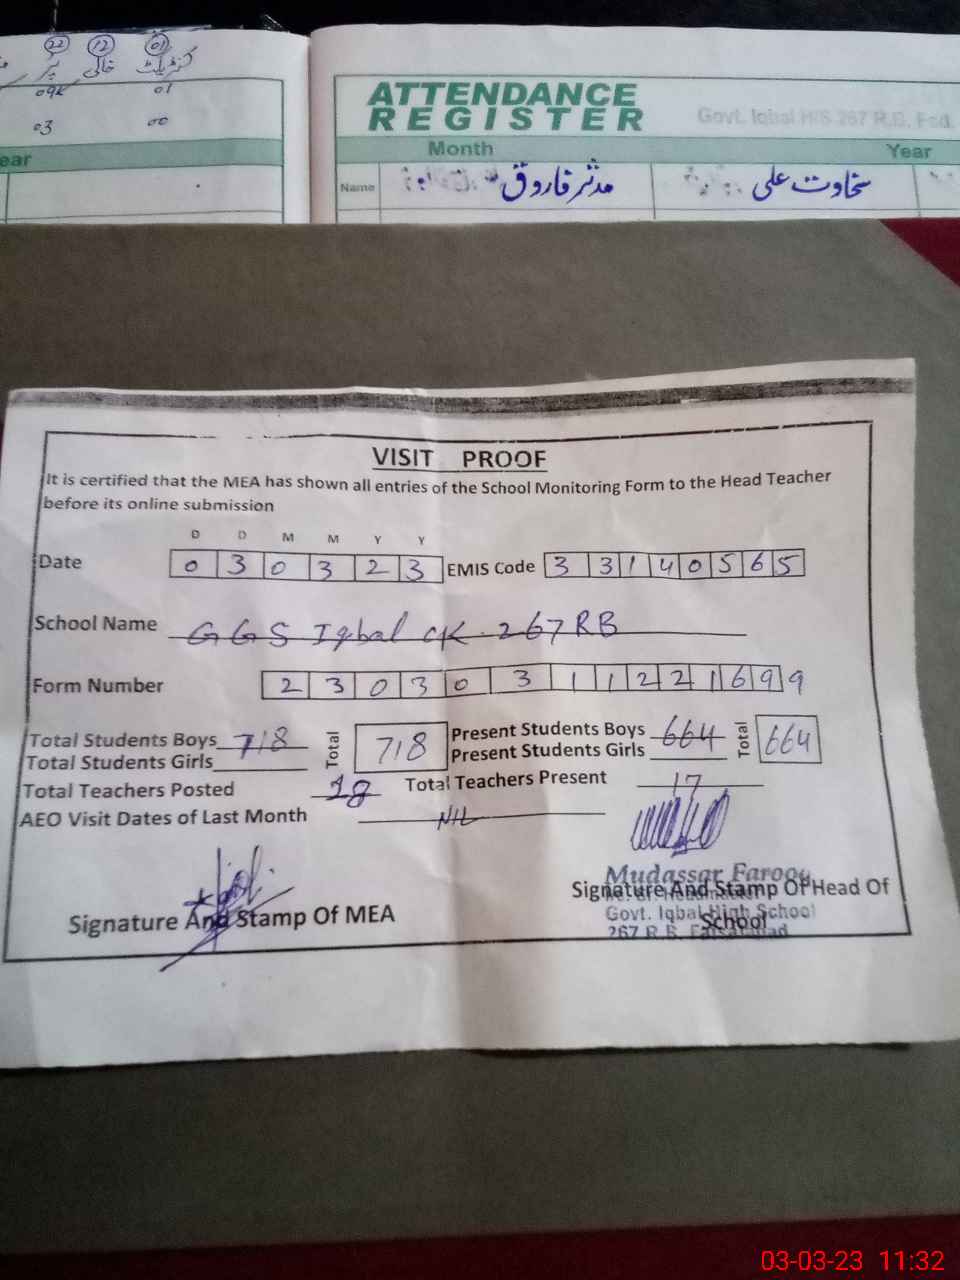 22 12 01
خالی کنٹریکٹ
09k 01
03 00
ear
ATTENDANCE
REGISTER
Govt. Iqbal H/S 267 R.B. Fsd.
Month Year
Name مدثر فاروق سخاوت علی
VISIT PROOF
It is certified that the MEA has shown all entries of the School Monitoring Form to the Head Teacher
before its online submission
D D M M Y Y
Date 0 3 0 3 2 3 EMIS Code 3 3 1 4 0 5 6 5
School Name G G S Iqbal CK. 267 RB
Form Number 2 3 0 3 0 3 1 1 2 2 1 6 9 9
Total Students Boys 718 Total 718 Present Students Boys 664 Total 664
Total Students Girls Present Students Girls
Total Teachers Posted 18 Total Teachers Present 17
AEO Visit Dates of Last Month NIL
Mudassar Farooq
Signature And Stamp Of MEA Signature And Stamp Of Head Of
Headmaster
Govt. Iqbal High School
School
267 R.B. Faisalabad
03-03-23 11:32